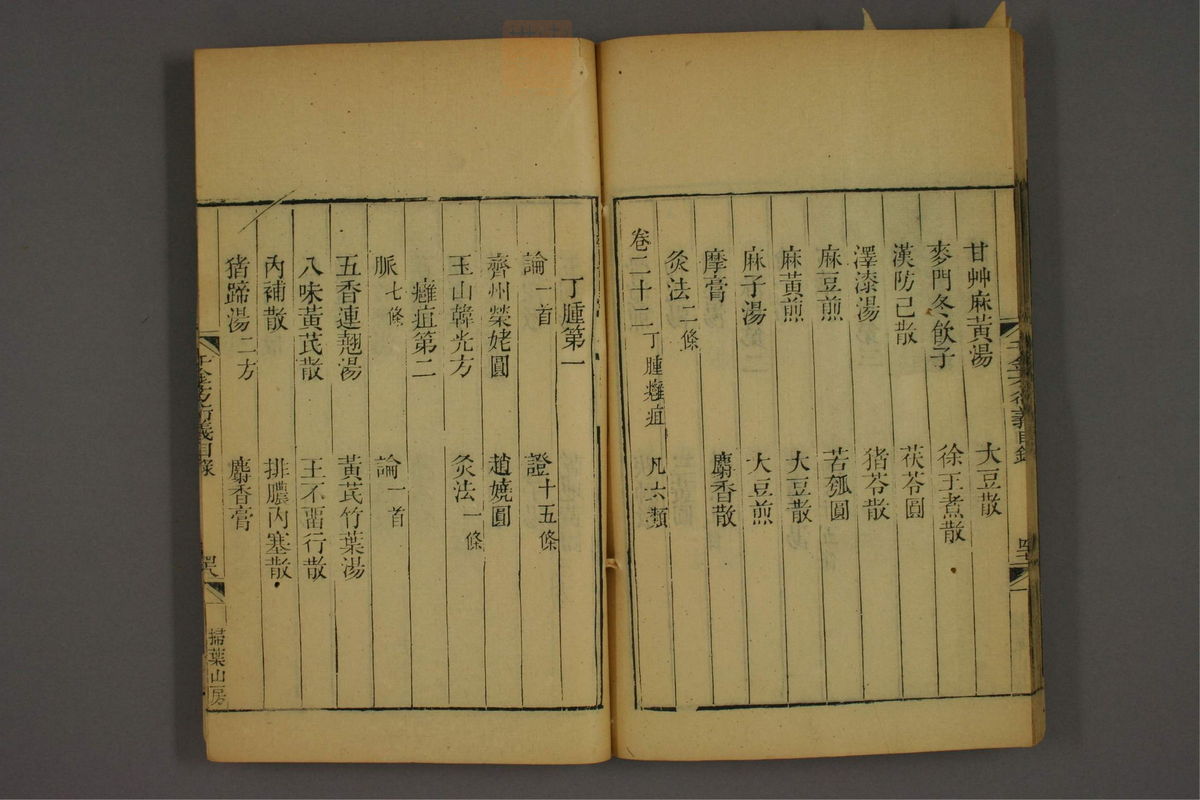 甘艸麻黃湯 大豆散
麥門冬飲子 徐王煮散
漢防己散 茯苓圓
澤漆湯 猪苓散
麻豆煎 苦瓠圓
麻黃煎 大豆散
麻子湯 大豆煎
摩膏 麝香散
灸法二條
卷二十二 丁腫癰疽 凡六類
千金方衍義目錄
丁腫第一
論一首 證十五條
齊州榮姥圓 趙嬈圓
玉山韓光方 灸法一條
癰疽第二
脈七條 論一首
五香連翹湯 黃芪竹葉湯
八味黃芪散 王不畱行散
內補散 排膿內塞散
猪蹄湯二方 麝香膏
千金方衍義目錄
掃葉山房